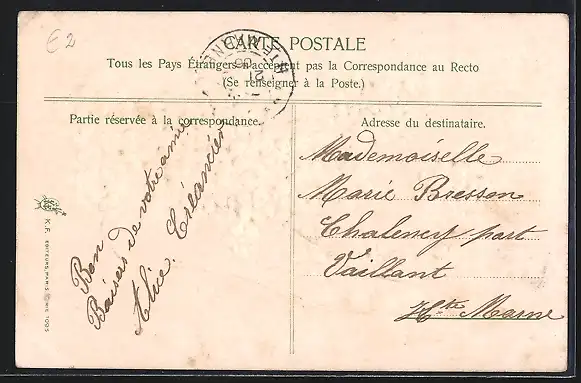 €2
CARTE POSTALE
Tous les Pays Étrangers n'acceptent pas la Correspondance au Recto
(Se renseigner à la Poste.)
Partie réservée à la correspondance.
Adresse du destinataire.
Bon
Baisers de votre amie
Alice
Mademoiselle
Marie Bresson
Chalency part
Vaillant
Hte Marne
K. F. EDITEURS, PARIS
1095